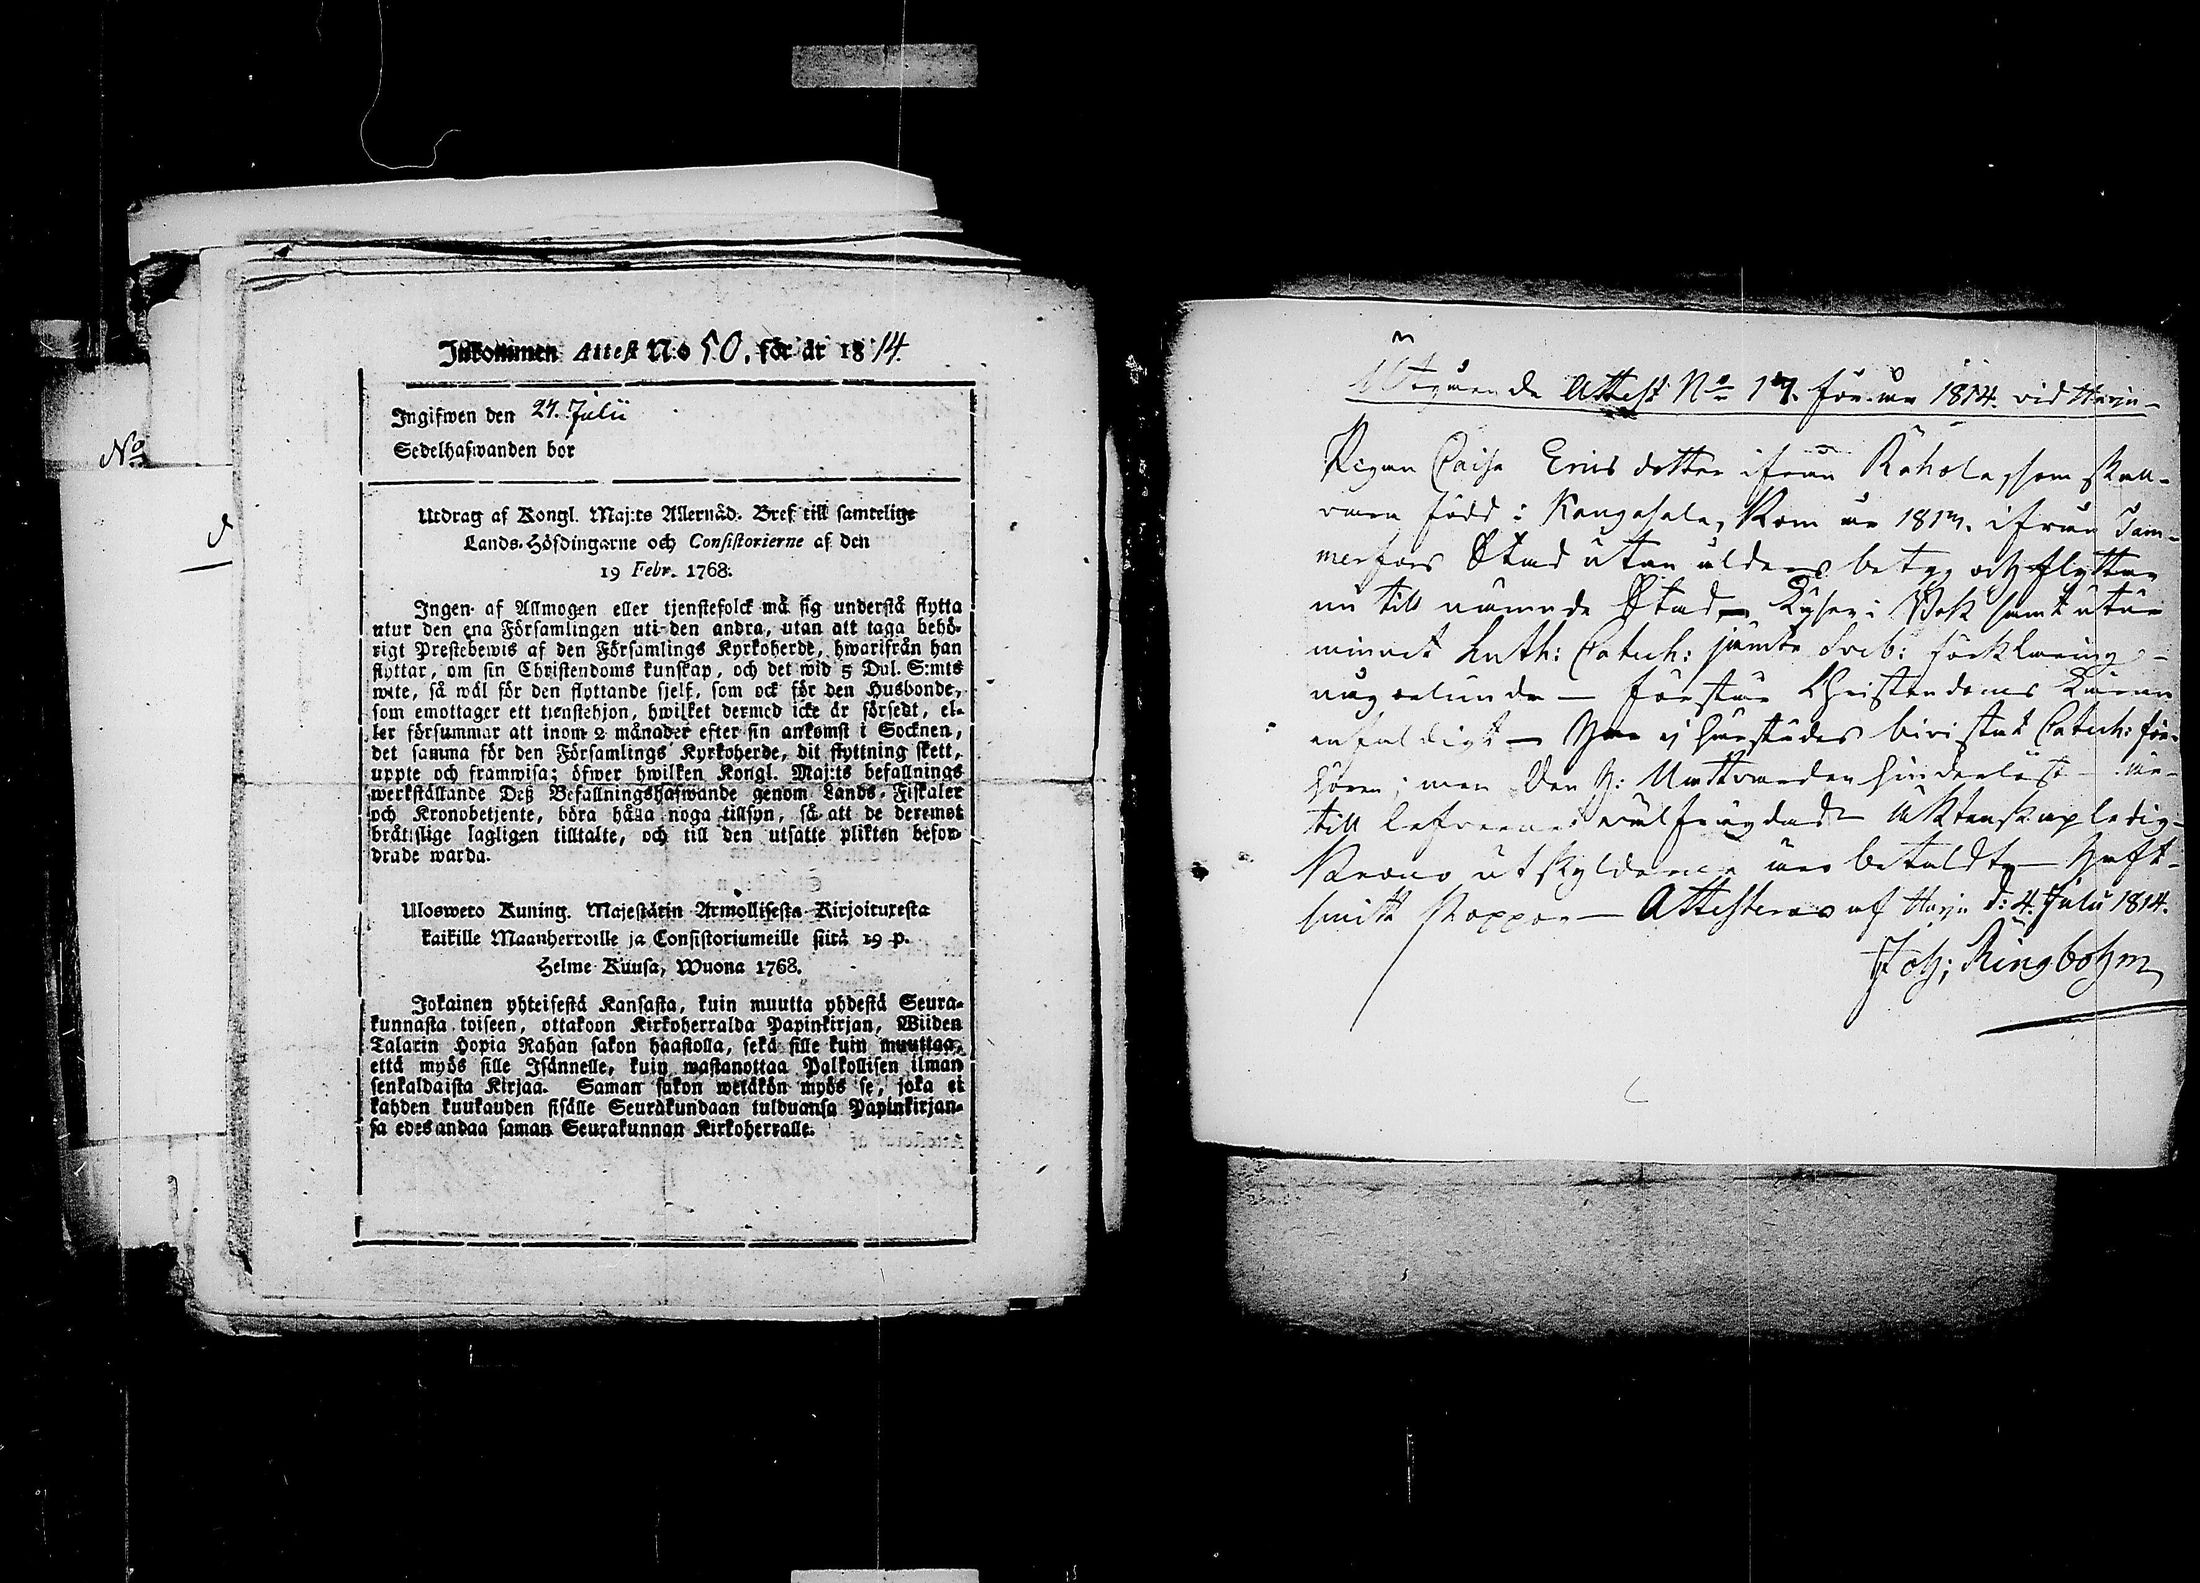 Inkommen Attest N:o 50. för år 1814.
Ingifwen den 27. Julii
Sedelhafwanden bor
No
Utdrag af Kongl. Maj:ts Allernåd. Bref till samtelige
Lands-Höfdingarne och Consistorierne af den
19 Febr. 1768.
Ingen af Allmogen eller tjenstefolck må sig understå flytta
utur den ena Församlingen uti den andra, utan att taga behö-
rigt Prestebewis af den Församlings Kyrkoherde, hwarifrån han
flyttar, om sin Christendoms kunskap, och det wid 5 Dal. S:mts
wite, så wäl för den flyttande sjelf, som ock för den Husbonde,
som emottager ett tjenstehjon, hwilket dermed icke är försedt, el-
ler försummar att inom 2 månader efter sin ankomst i Socknen,
det samma för den Församlings Kyrkoherde, dit flyttning skett,
uppte och framwisa; öfwer hwilken Kongl. Maj:ts befallnings
werkställande Deß Befallningshafwande genom Lands-Fiskaler
och Kronobetjente, böra hålla noga tillsyn, så att de deremot
bråtslige lagligen tilltalte, och till den utsatte plikten befor-
drade warda.
Ulosweto Kuning. Majestätin Armollisesta Kirjoituxesta
kaikille Maanherroille ja Consistoriumeille siitä 19 p.
Helme Kuusa, Wuona 1768.
Jokainen yhteisestä Kansasta, kuin muutta yhdestä Seura-
kunnasta toiseen, ottakoon Kirkoherralda Papinkirjan, Wiiden
Talarin Hopia Rahan sakon haastolla, sekä sille kuin muuttaa,
että myös sille Isännelle, kuin wastanottaa Palkollisen ilman
senkaldaista Kirjaa. Saman sakon wetäkön myös se, joka ei
kahden kuukauden sisälle Seurakundaan tulduansa Papinkirjan-
sa edesandaa saman Seurakunnan Kirkoherralle.
Utgående Attest No 17. för år 1814. vid Harju
Pigan Caisa Ericsdotter ifrån Rahola, som skall
vara född i Kangasala, Kom år 1813. ifrån Tam-
merfors Stad utan ålders betyg och flyttar
nu till nämnde Stad – Läser i Bok samt utur
minnet Luth: Catech: jämte Sveb: förklaring
någorlunda – förstår Christendoms Läran
enfaldigt – Har ej härstädes bivistat Catech: för-
hören; men Den H: Nattvarden hinderlöst – är
till lefvernet välfrägdad – Äktenskapsledig –
Krono utskylderna äro betaldte – Haft
Koppor – Attesteras af Harju d: 4. Julii 1814.
Joh: Ringbohm